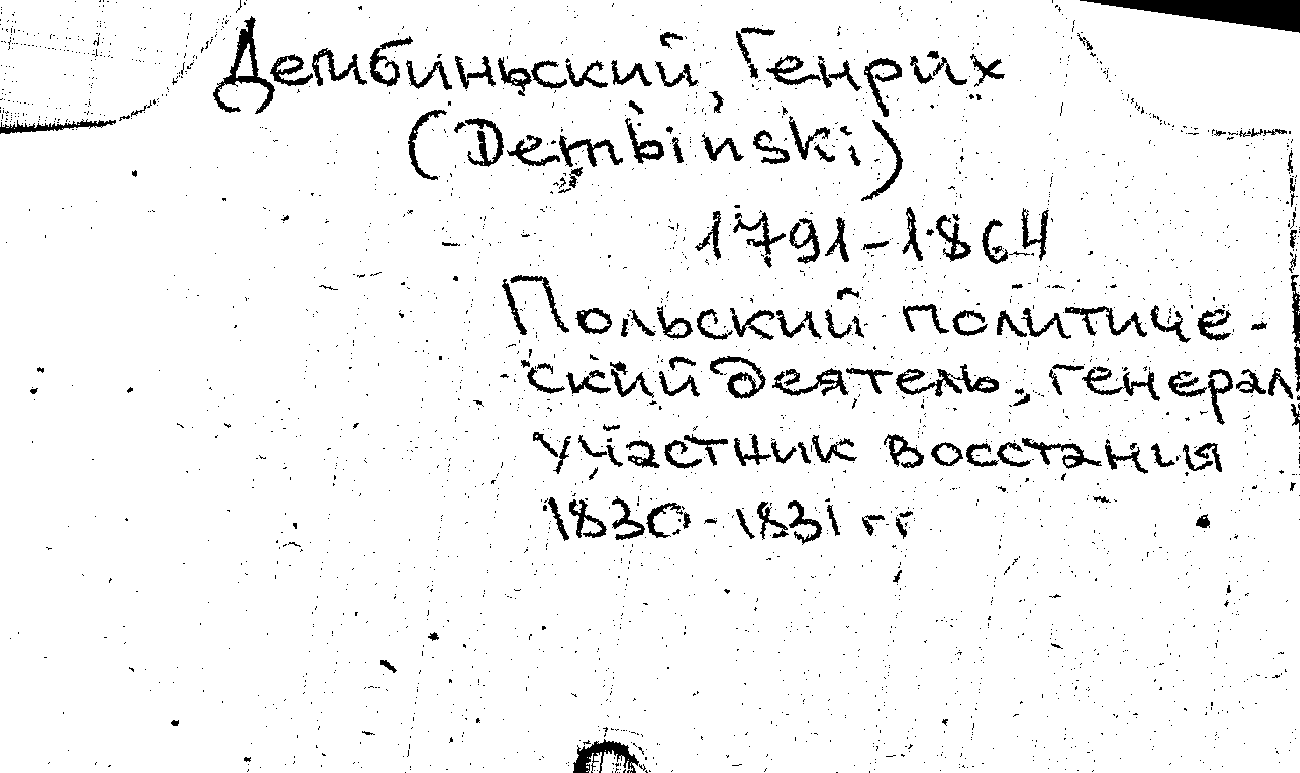 Дембиньский, Генрих
(Dembinski)
1791-1864
Польский политиче-
ский деятель, генерал
участник восстания
1830-1831 гг